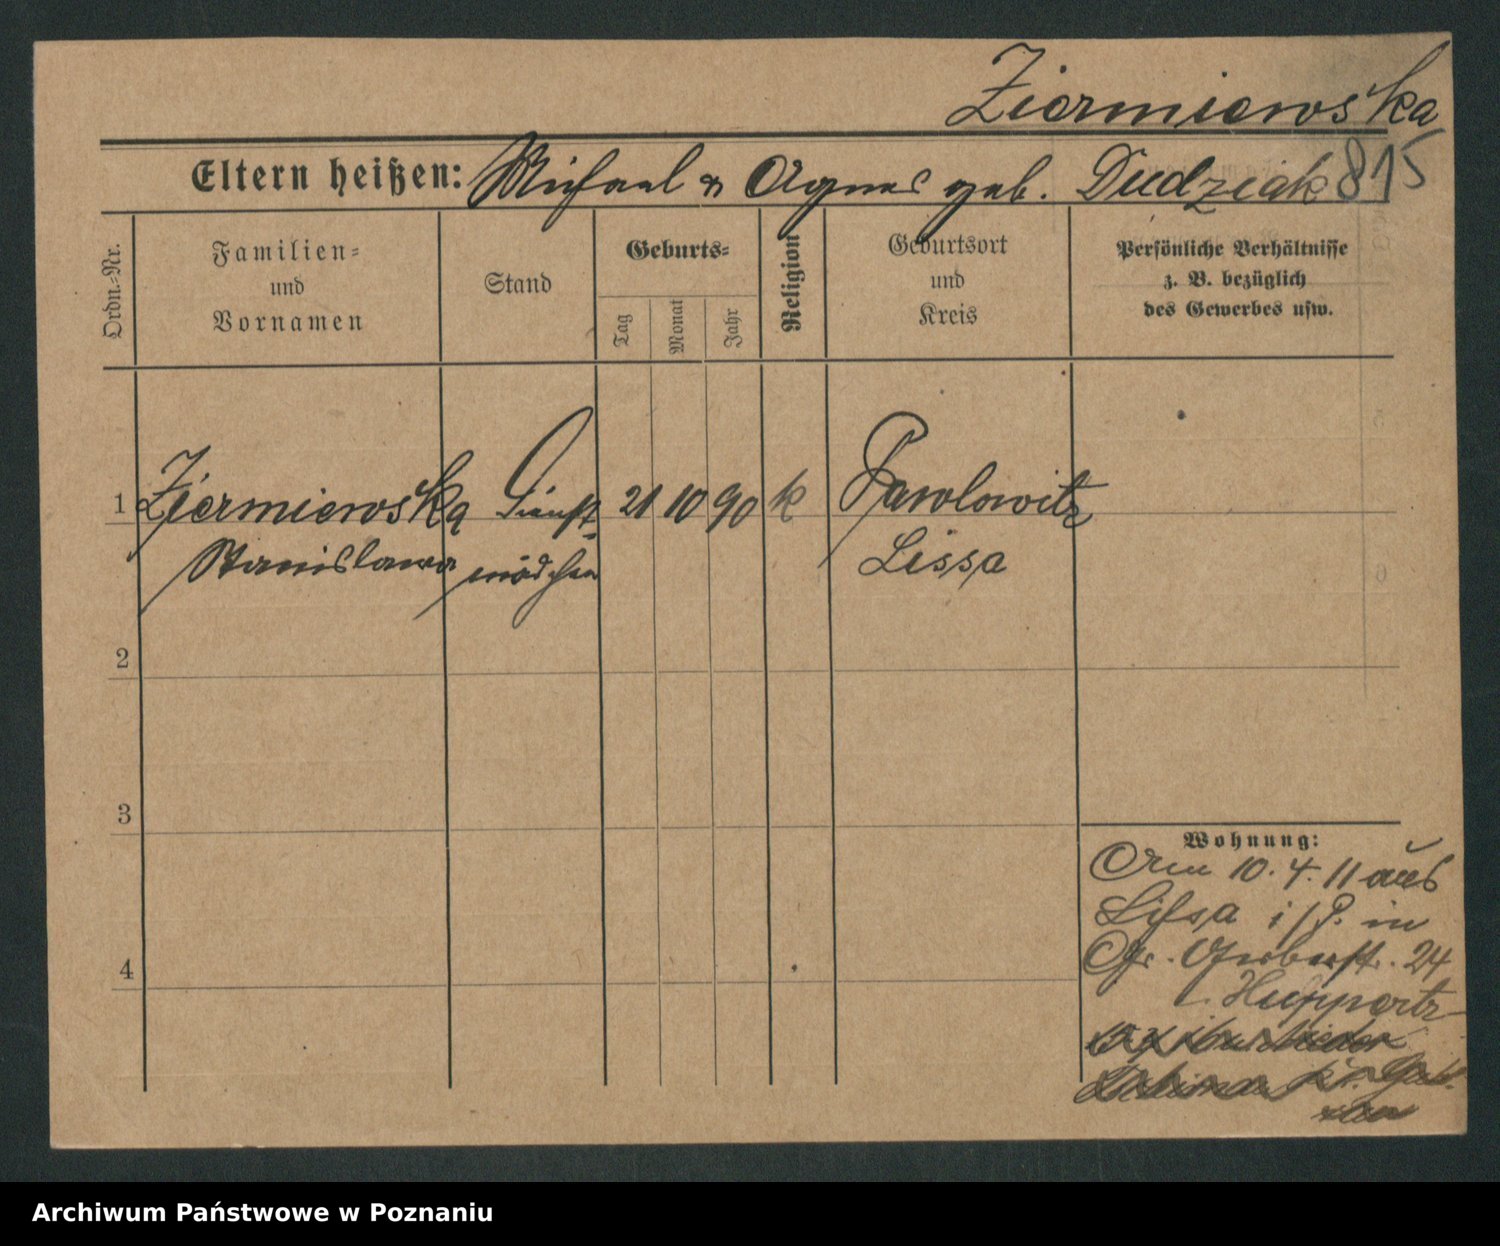 Ziermiewska
Eltern heißen: Michael & Agnes geb. Dudziak 815
Ordn.-Nr.
Familien-
und
Vornamen
Stand
Geburts-
Tag
Monat
Jahr
Religion
Geburtsort
und
Kreis
Persönliche Verhältnisse
z. B. bezüglich
des Gewerbes usw.
1 Ziermiewska Dienst- 21 10 90 k Pawlowitz
Stanislawa mädchen Lissa
2
3
4
Wohnung:
Am 10. 4. 11 aus
Lissa i/P. in
Gr. Gerberstr. 24
Huppertz
Archiwum Państwowe w Poznaniu